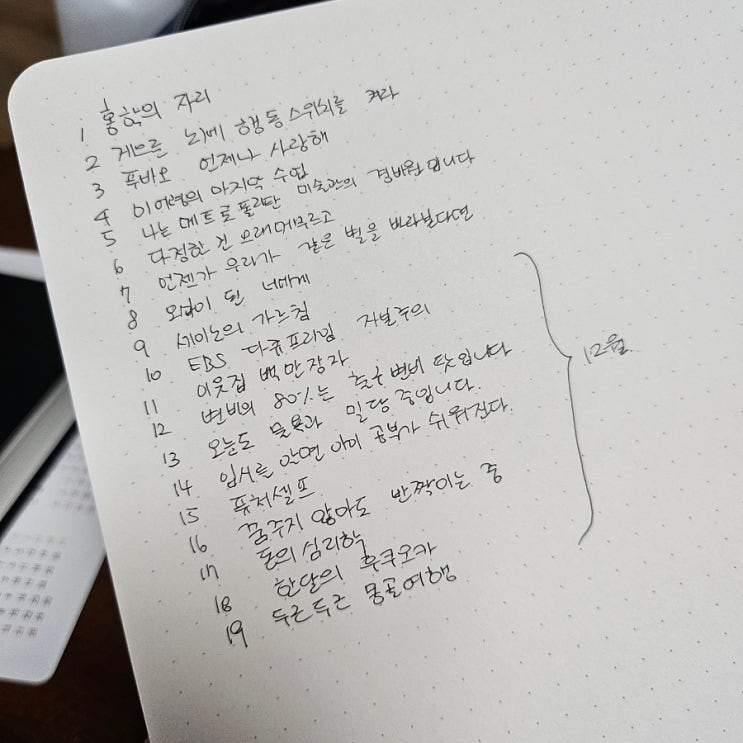 1 홍학의 자리
2 게으른 뇌에 행동 스위치를 켜라
3 푸바오 언제나 사랑해
4 이어령의 마지막 수업
5 나는 메트로폴리탄 미술관의 경비원입니다
6 다정한 건 오래 머무르고
7 언젠가 우리가 같은 별을 바라본다면
8 외님이 된 너에게
9 세이노의 가르침
10 EBS 다큐프라임 자본주의
11 이웃집 백만장자
12 변비의 80%는 출구 변비 탓입니다
13 오늘도 물욕과 밀당 중입니다.
14 입시를 알면 아이 공부가 쉬워진다.
15 퓨처셀프
16 꿈꾸지 않아도 반짝이는 중
17 돈의 심리학
18 한달의 후쿠오카
19 두근두근 몽골여행
12월